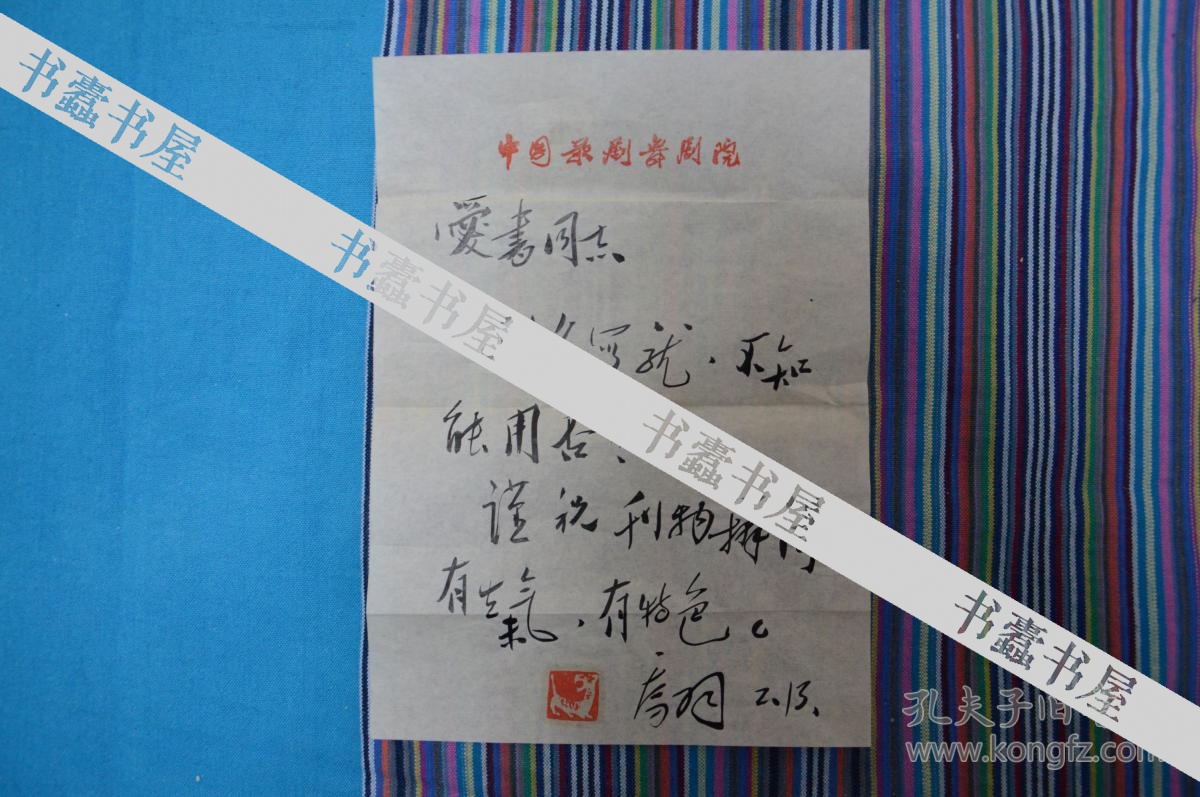 中国歌剧舞剧院
爱書同志
写就,不知
能用否、
谨祝刊物
有生氣,有特色。
乔羽 2.13.
书蠹书屋
书蠹书屋
书蠹书屋
书蠹书屋
孔夫子旧
www.kongfz.com